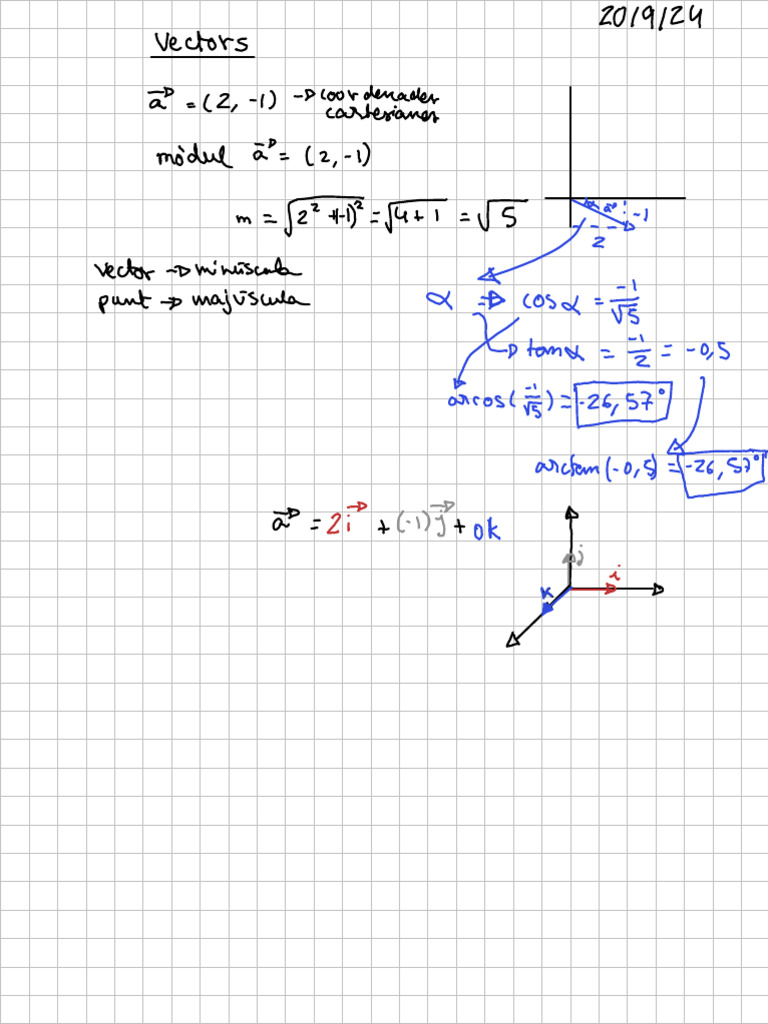 20/9/24
Vectors
a⃗ = (2, -1) → coordenades
cartesianes
mòdul a⃗ = (2, -1)
m = √(2² + (-1)²) = √(4 + 1) = √5
a⃗ -1
2
vector → minúscula
punt → majúscula
α ⇒ cos α = -1/√5
→ tan α = -1/2 = -0,5
arcos(-1/√5) = -26,57°
arctan(-0,5) = -26,57°
a⃗ = 2i⃗ + (-1)j⃗ + 0k
j
i
k